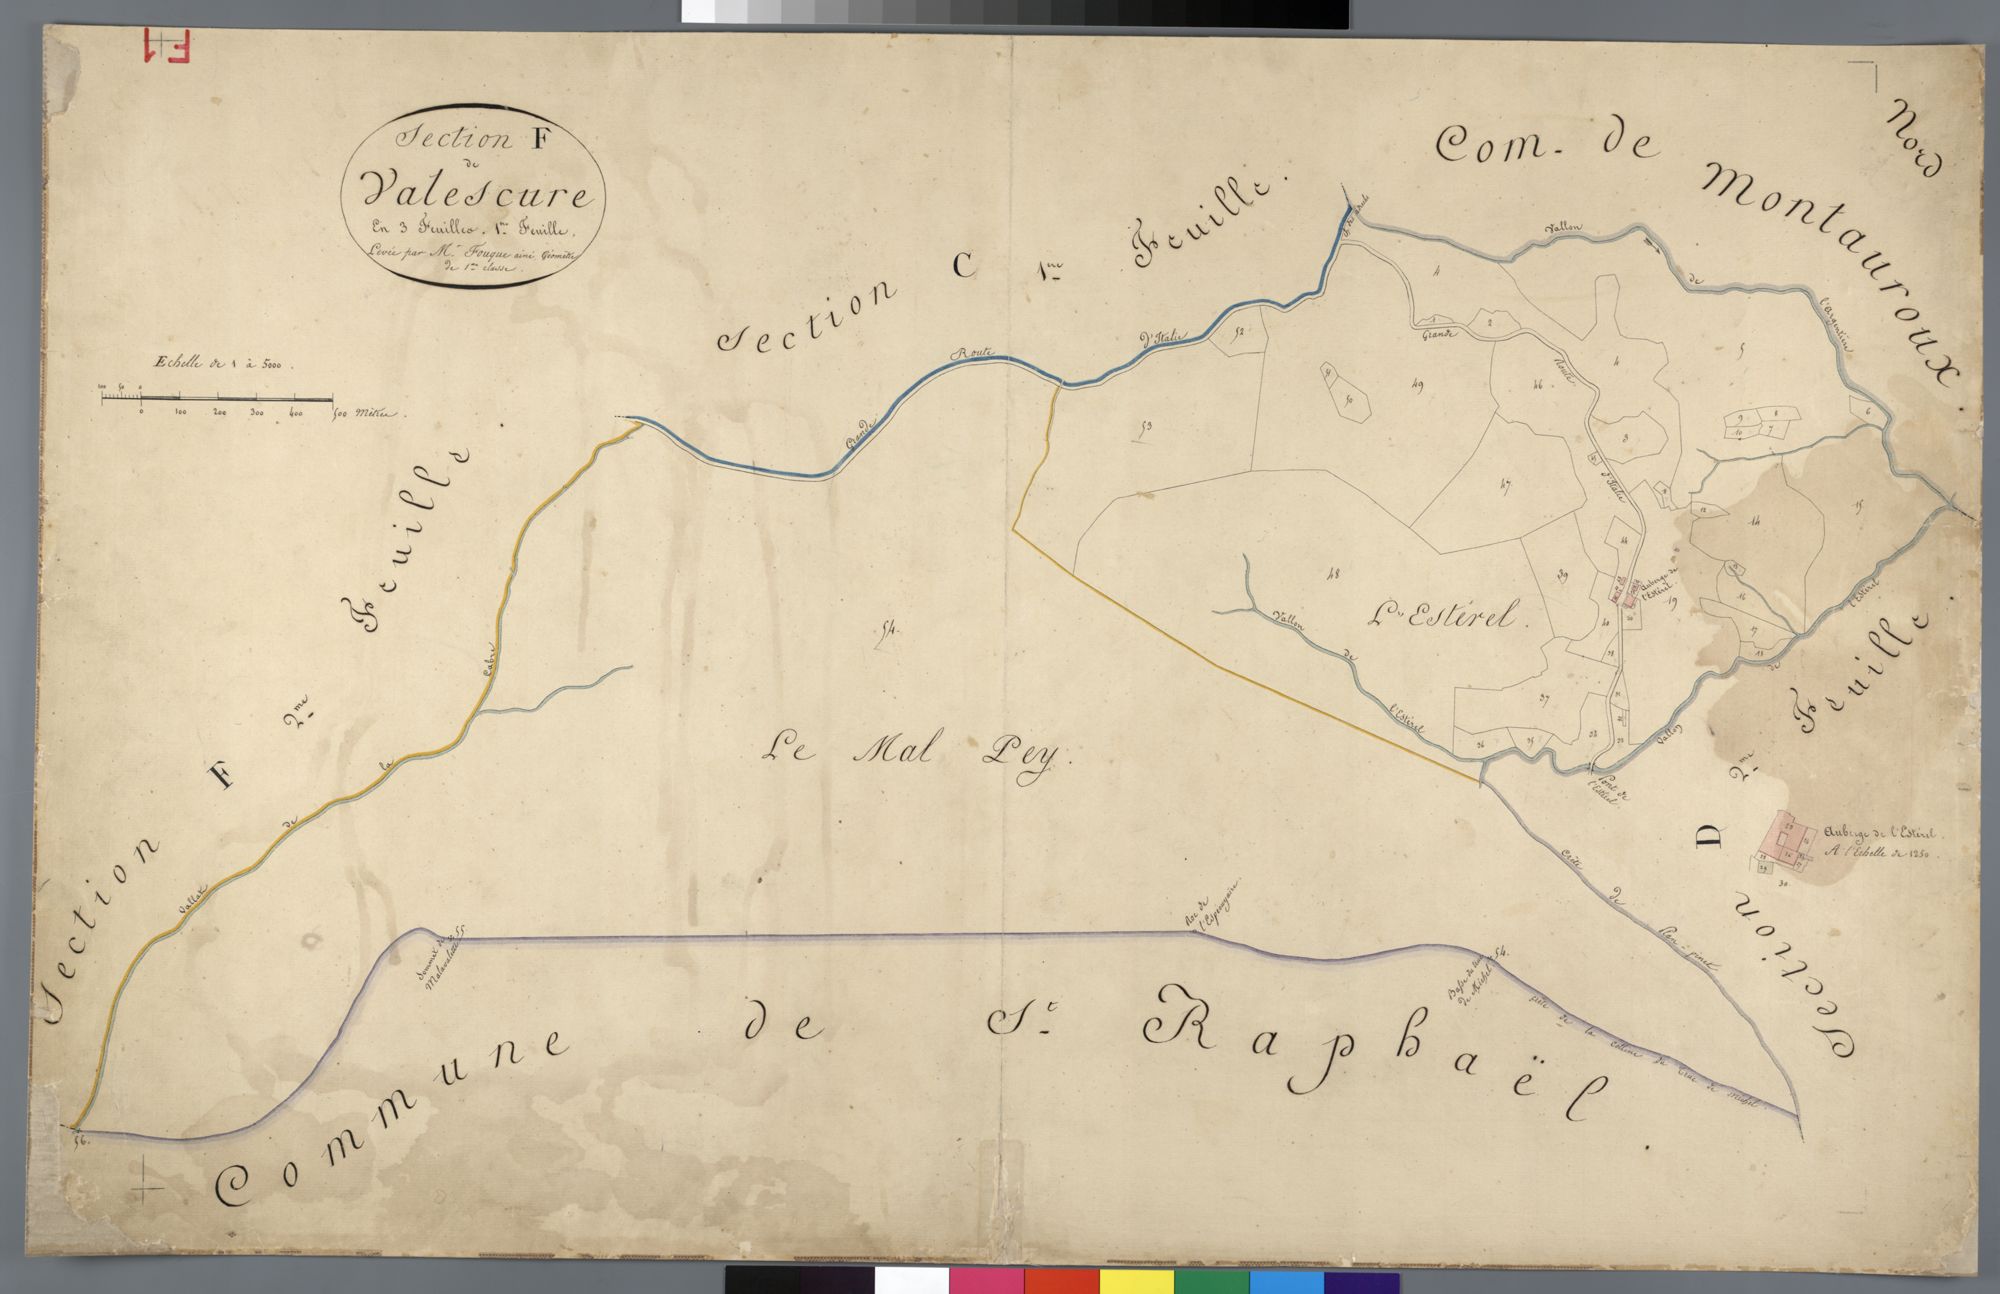 F1
Section F
de
Valescure
En 3 Feuilles. 1re Feuille.
Levée par Mr. Fouque ainé Géomètre
de 1re classe.
Echelle de 1 à 5000.
100 50 0
0 100 200 300 400 500 Mètres.
Nord
Com. de Montauroux.
Section C 1re Feuille.
Section F 2me Feuille
Section D 2me Feuille
Commune de St. Raphaël.
Grande Route d'Italie
Grande Route d'Italie
Vallon de l'Argentière
Vallon de l'Estérel
Vallon de l'Estérel
Vallat de la Cabre
Le Mal Pey.
L'Estérel.
Auberge de
l'Estérel.
19
Pont de
l'Estérel
Auberge de l'Estérel.
A l'Echelle de 1250.
30
Crête de Plan-pinet
Sommet de
Malavalette
55
Roc de
54.
56.
de la Colline du
4
1
2
4
5
49
50
46
52
53
3
6
9
8
10
7
47
12
14
15
48
39
44
16
17
18
40
38
37
36
35
20
54.